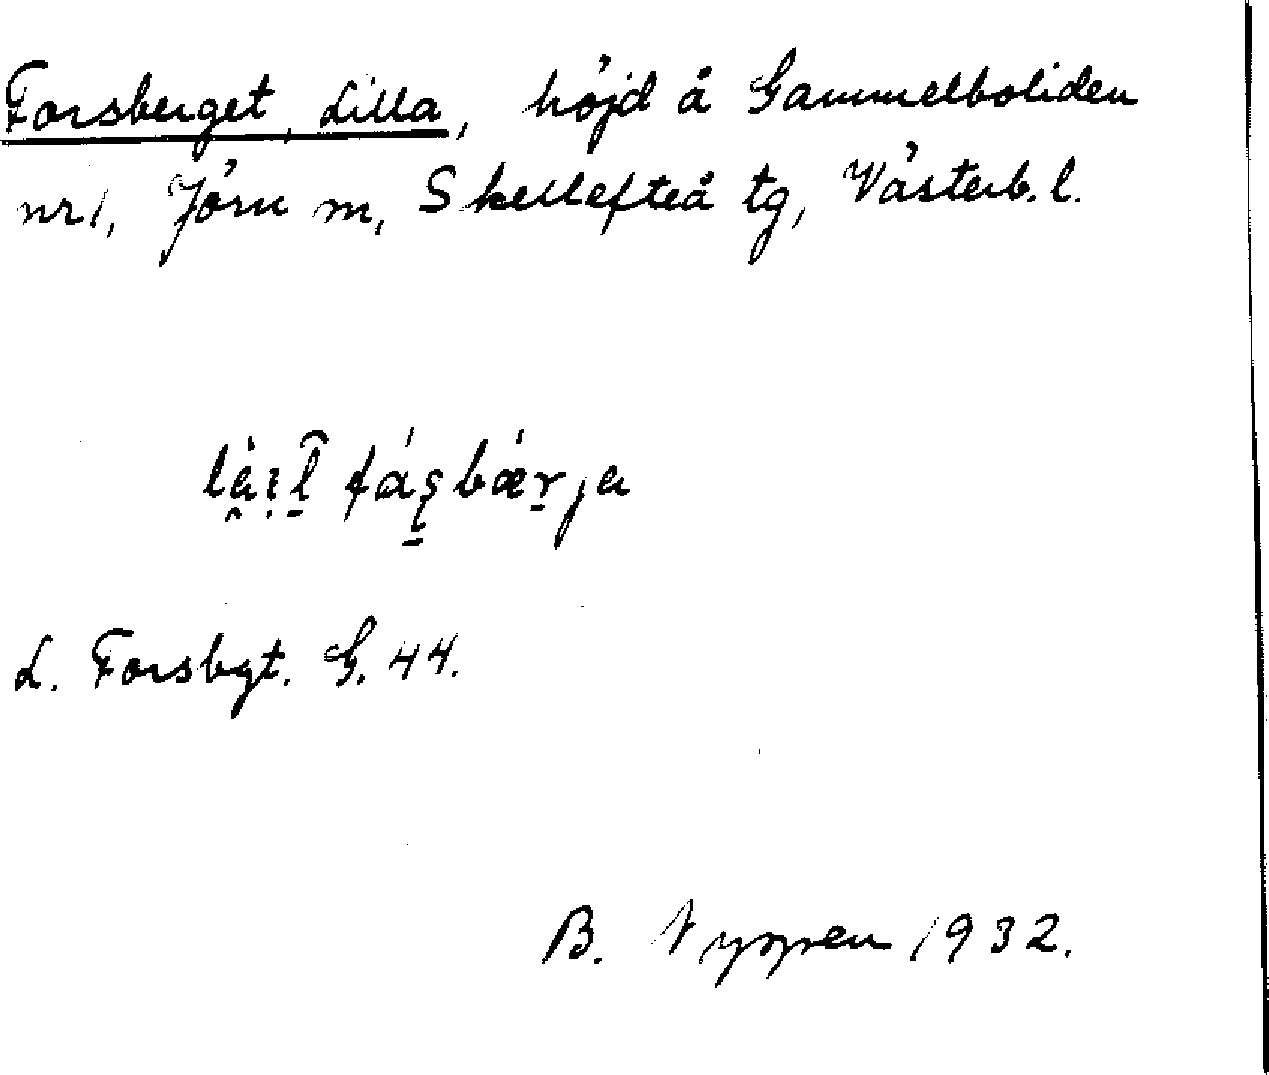 Forsberget, Lilla, höjd å Gammelboliden
nr 1, Jörn m, Skellefteå tg, Västerb. l.
L. Forsbgt. G. 44.
B. Nyppen 1932.